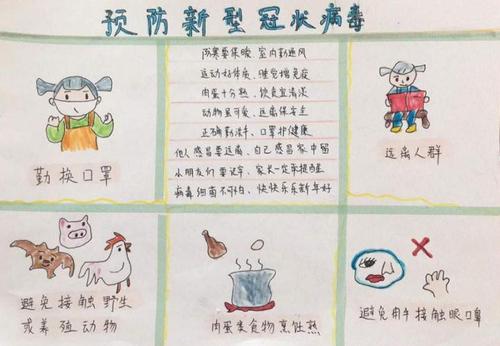 预防新型冠状病毒
防寒要保暖，室内勤通风
运动好体质，睡觉增免疫
肉蛋十分熟，饮食宜清淡
动物虽可爱，远离保安全
正确勤洗手，口罩护健康
他人感冒要远离，自己感冒家中留
小朋友们要记牢，家长一定常提醒
病毒细菌不可怕，快快乐乐新年好
勤换口罩
远离人群
避免接触野生
或养殖动物
肉蛋类食物烹饪熟
避免用手接触眼口鼻